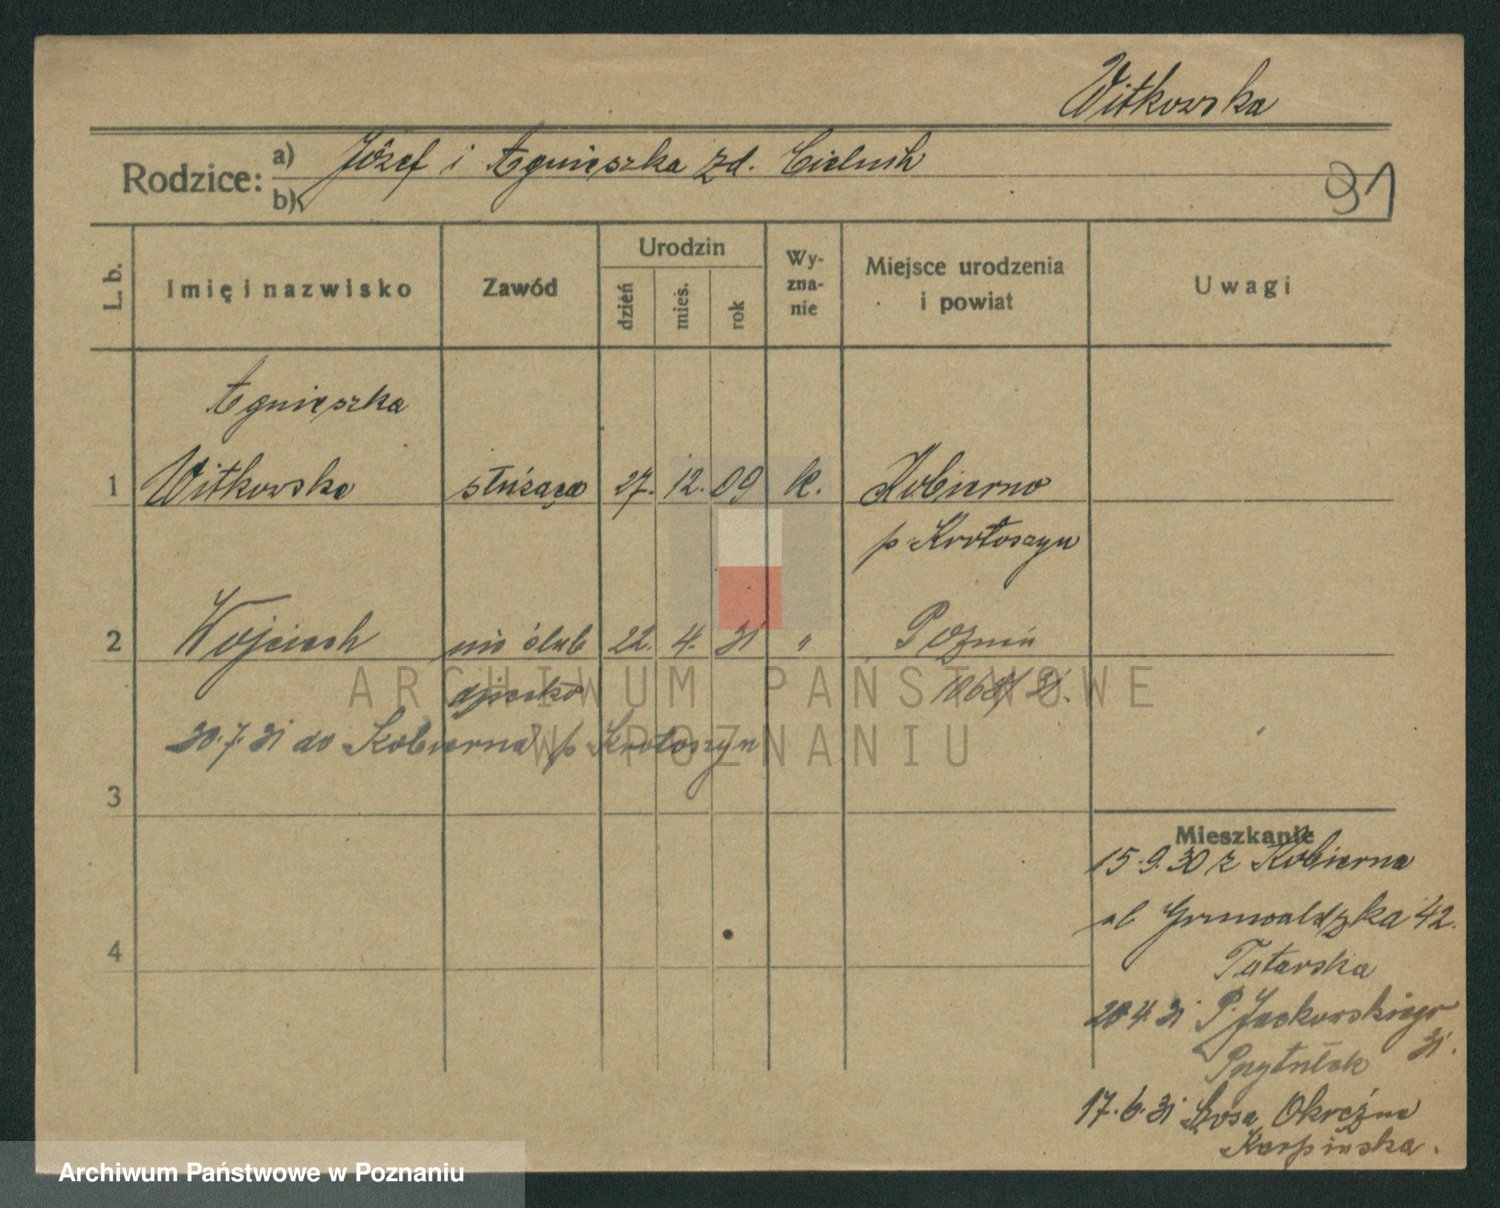 Witkowska
Rodzice: a) Józef i Agnieszka zd. Cielnik
b)
91
L. b.
Imię i nazwisko
Zawód
Urodzin
dzień
mies.
rok
Wy-
zna-
nie
Miejsce urodzenia
i powiat
Uwagi
Agnieszka
1 Witkowska służąca 27. 12. 09 k. Kobierno
p Krotoszyn
2 Wojciech nie ślub 22. 4. 31 " Poznań
dziecko 1068/31.
30.7.31 do Kobierna p Krotoszyn
3
4
Mieszkanie
15.9.30 z Kobierna
ul Grunwaldzka 42.
Tatarska
20.4.31 P. Jackowskiego
31.
Przytułek
17.6.31 Szosa Okrężna
Karpińska.
ARCHIWUM PAŃSTWOWE
W POZNANIU
Archiwum Państwowe w Poznaniu